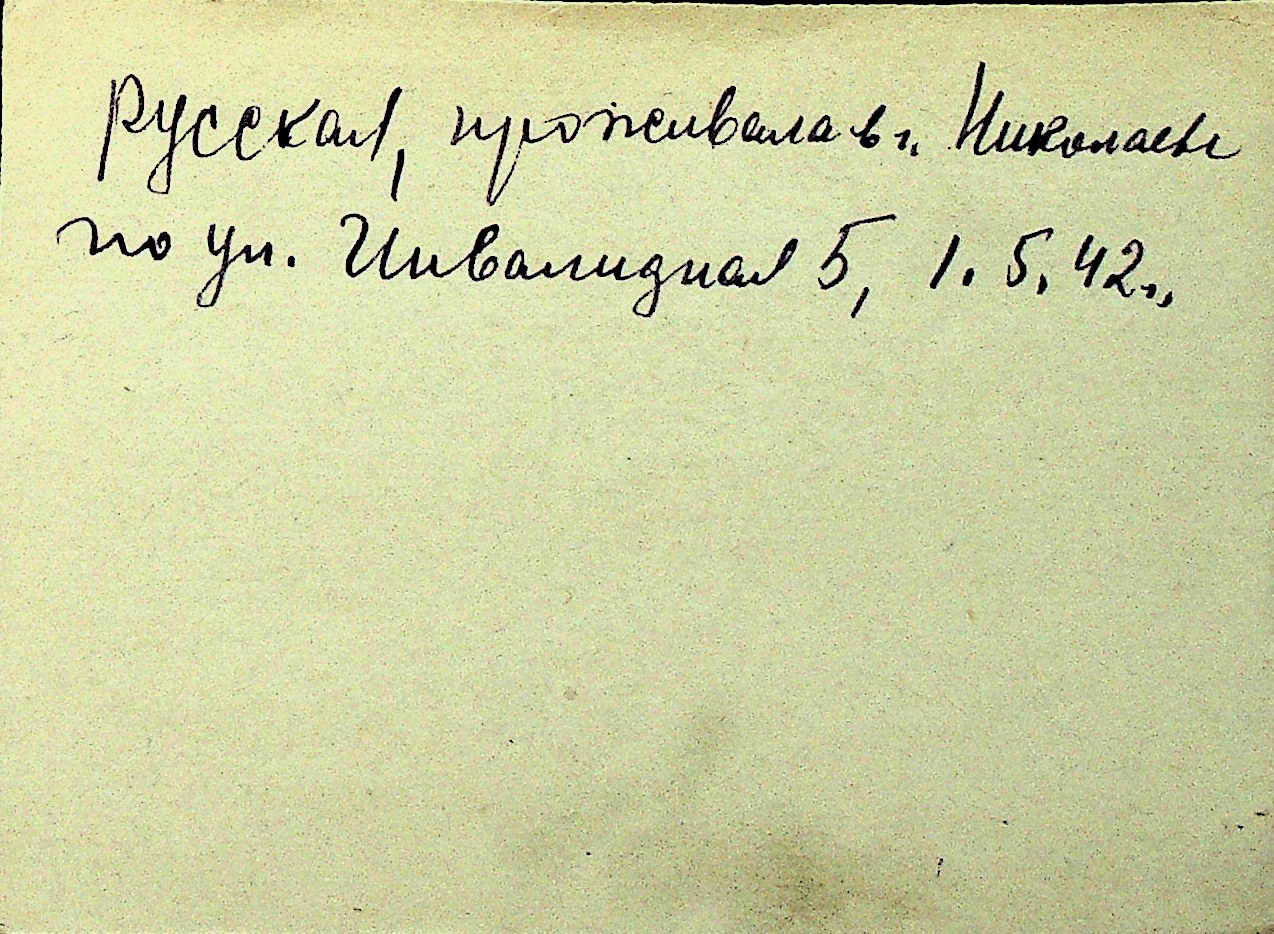 Русская, проживала в г. Николаеве
по ул. Инвалидная 5, 1.5.42г.,